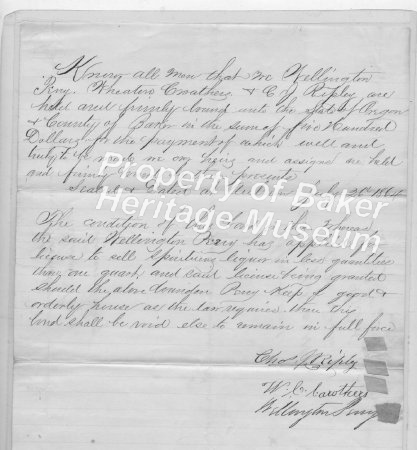 Know all men that we Wellington
Perry. Wheaton Cwathers & C J Ripley are
held and firmly bound unto the State of Oregon
& County of Baker in the sum of five Hundred
Dollars for the payment of which well and
truly to be made we our heirs and assigns are held
and firmly presents
Sealed & Dated 1864
Property of Baker
Heritage Museum
The condition of the
the said Wellington Perry has
license to sell Spirituous liquor in less quantities
than one quart, and said license being granted
should the above Perry Keep a good &
orderly house as the law requires then this
bond shall be void else to remain in full force
Chas J Riply
W. C. Carothers
Wellington Perry